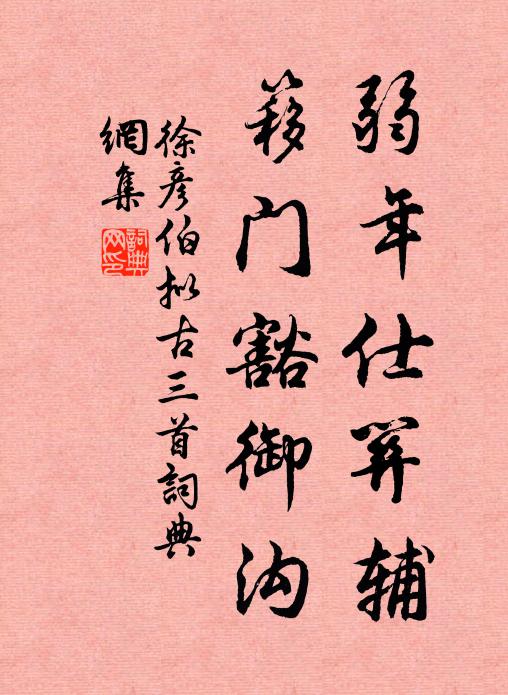 弱年仕关辅
簃门豁御沟
徐彦伯拟古三首詞典
網集
詞典
网印